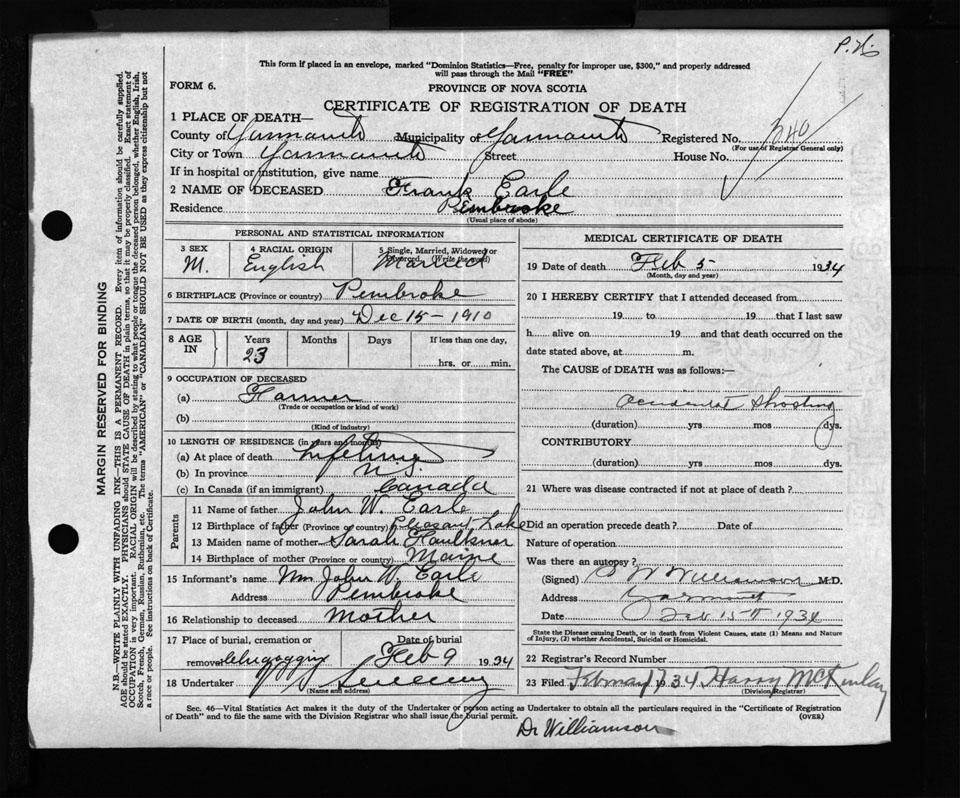 P.N.
This form if placed in an envelope, marked "Dominion Statistics—Free, penalty for improper use, $300," and properly addressed
will pass through the Mail "FREE"
FORM 6.
PROVINCE OF NOVA SCOTIA
CERTIFICATE OF REGISTRATION OF DEATH
1 PLACE OF DEATH—
County of Yarmouth Municipality of Yarmouth Registered No. 340
(For use of Registrar General only)
City or Town Yarmouth Street House No.
If in hospital or institution, give name
2 NAME OF DECEASED Frank Earle
Residence Pembroke
(Usual place of abode)
PERSONAL AND STATISTICAL INFORMATION
3 SEX 4 RACIAL ORIGIN 5 Single, Married, Widowed or Divorced. (Write the word)
M. English Married
6 BIRTHPLACE (Province or country) Pembroke
7 DATE OF BIRTH (month, day and year) Dec 15 - 1910
8 AGE IN Years Months Days If less than one day,
23 hrs. or min.
9 OCCUPATION OF DECEASED
(a) Farmer
(Trade or occupation or kind of work)
(b)
(Kind of industry)
10 LENGTH OF RESIDENCE (in years and months)
(a) At place of death Lifetime
(b) In province N.S.
(c) In Canada (if an immigrant) Canada
Parents
11 Name of father John W. Earle
12 Birthplace of father (Province or country) Pleasant Lake
13 Maiden name of mother Sarah Faulkner
14 Birthplace of mother (Province or country) Maine
15 Informant's name Mrs John W. Earle
Address Pembroke
16 Relationship to deceased Mother
17 Place of burial, cremation or Date of burial
removal Chegoggin Feb 9 1934
18 Undertaker Sweeney
(Name and address)
MEDICAL CERTIFICATE OF DEATH
19 Date of death Feb 5 1934
(Month, day and year)
20 I HEREBY CERTIFY that I attended deceased from
19 to 19 that I last saw
h alive on 19 and that death occurred on the
date stated above, at m.
The CAUSE of DEATH was as follows:—
Accidental Shooting
(duration) yrs mos dys.
CONTRIBUTORY
(duration) yrs. mos dys.
21 Where was disease contracted if not at place of death?
Did an operation precede death? Date of
Nature of operation
Was there an autopsy?
(Signed) S W Williamson M.D.
Address Yarmouth
Date Feb 15th 1934
State the Disease causing Death, or in death from Violent Causes, state (1) Means and Nature
of Injury, (2) whether Accidental, Suicidal or Homicidal.
22 Registrar's Record Number
23 Filed February 7 34 Harry McKinlay
(Division Registrar)
Sec. 46—Vital Statistics Act makes it the duty of the Undertaker or person acting as Undertaker to obtain all the particulars required in the "Certificate of Registration
of Death" and to file the same with the Division Registrar who shall issue the burial permit. (OVER)
Dr Williamson
MARGIN RESERVED FOR BINDING
N.B.—WRITE PLAINLY WITH UNFADING INK—THIS IS A PERMANENT RECORD. Every item of information should be carefully supplied.
AGE should be stated EXACTLY. PHYSICIANS should STATE CAUSE OF DEATH in plain terms, so that it may be properly classified. Exact statement of
OCCUPATION is very important. RACIAL ORIGIN will be described by stating to what people or tongue the deceased person belonged, whether English, Irish,
Scotch, French, German, Russian, Ruthenian, etc. The terms "AMERICAN" or "CANADIAN" SHOULD NOT BE USED as they express citizenship but not
a race or people. See instructions on back of Certificate.